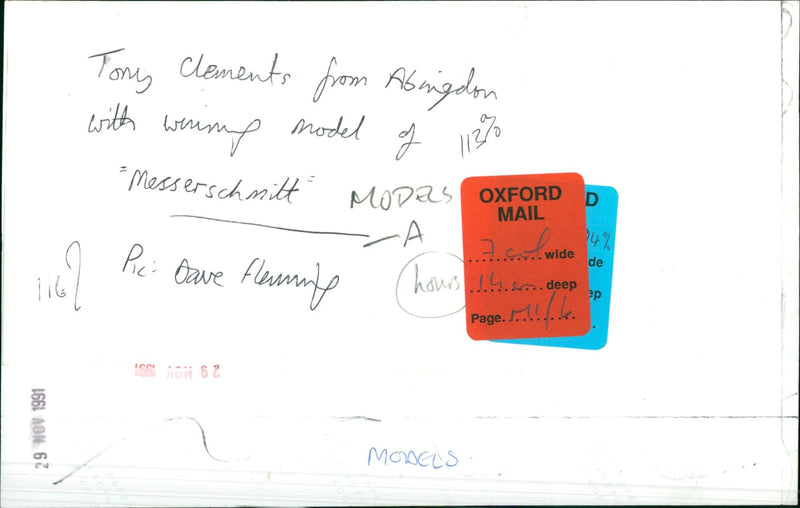 Tony Clements from Abingdon
with winning model of 113%
"Messerschmitt" MODELS
A
116%
Pic: Dave Fleming
hours
OXFORD
MAIL
7 col wide
14 cm deep
Page M1/6
D
94%
de
ep
29 NOV 1991
29 NOV 1991
MODELS